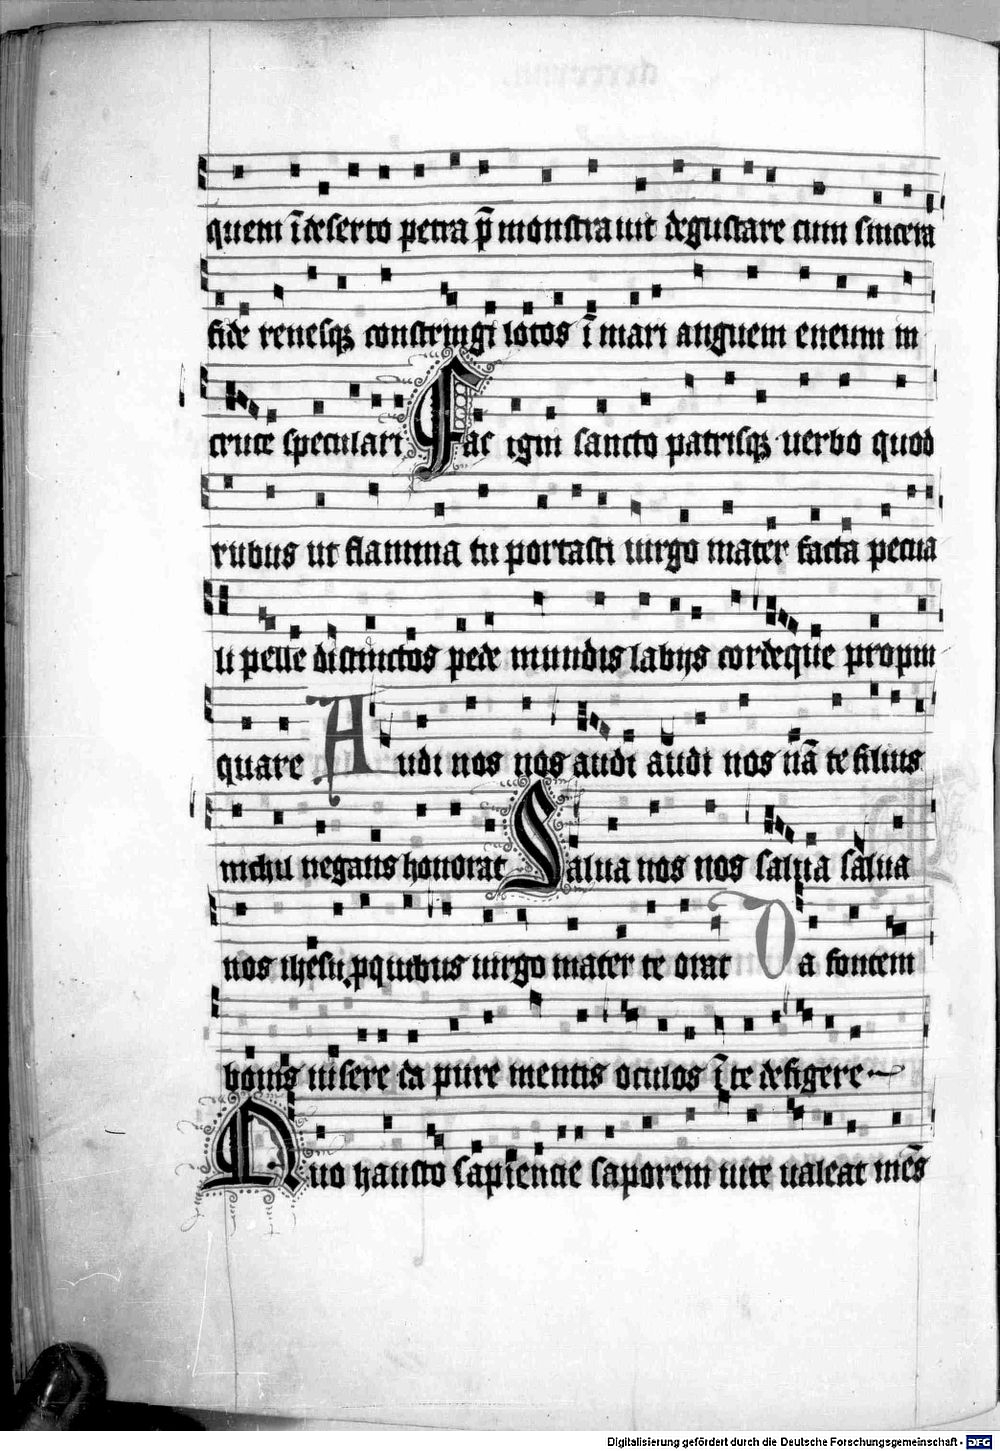 quem ī deserto petra p̄monstrauit degustare cum sincera
fide renesqȝ constringi lotos ī mari anguem eneum in
cruce speculari Fac igni sancto patrisqȝ uerbo quod
rubus ut flamma tu portasti uirgo mater facta pecua
li pelle distinctos pede mundis labijs cordeque propin
quare Audi nos nos audi audi nos nā te filius
nichil negans honorat Salua nos nos salua salua
nos ihesu pquibus uirgo mater te orat Da fontem
bonis uisere da pure mentis oculos ī te defigere
Quo hausto sapiencie saporem uite ualeat mēs
Digitalisierung gefördert durch die Deutsche Forschungsgemeinschaft - DFG